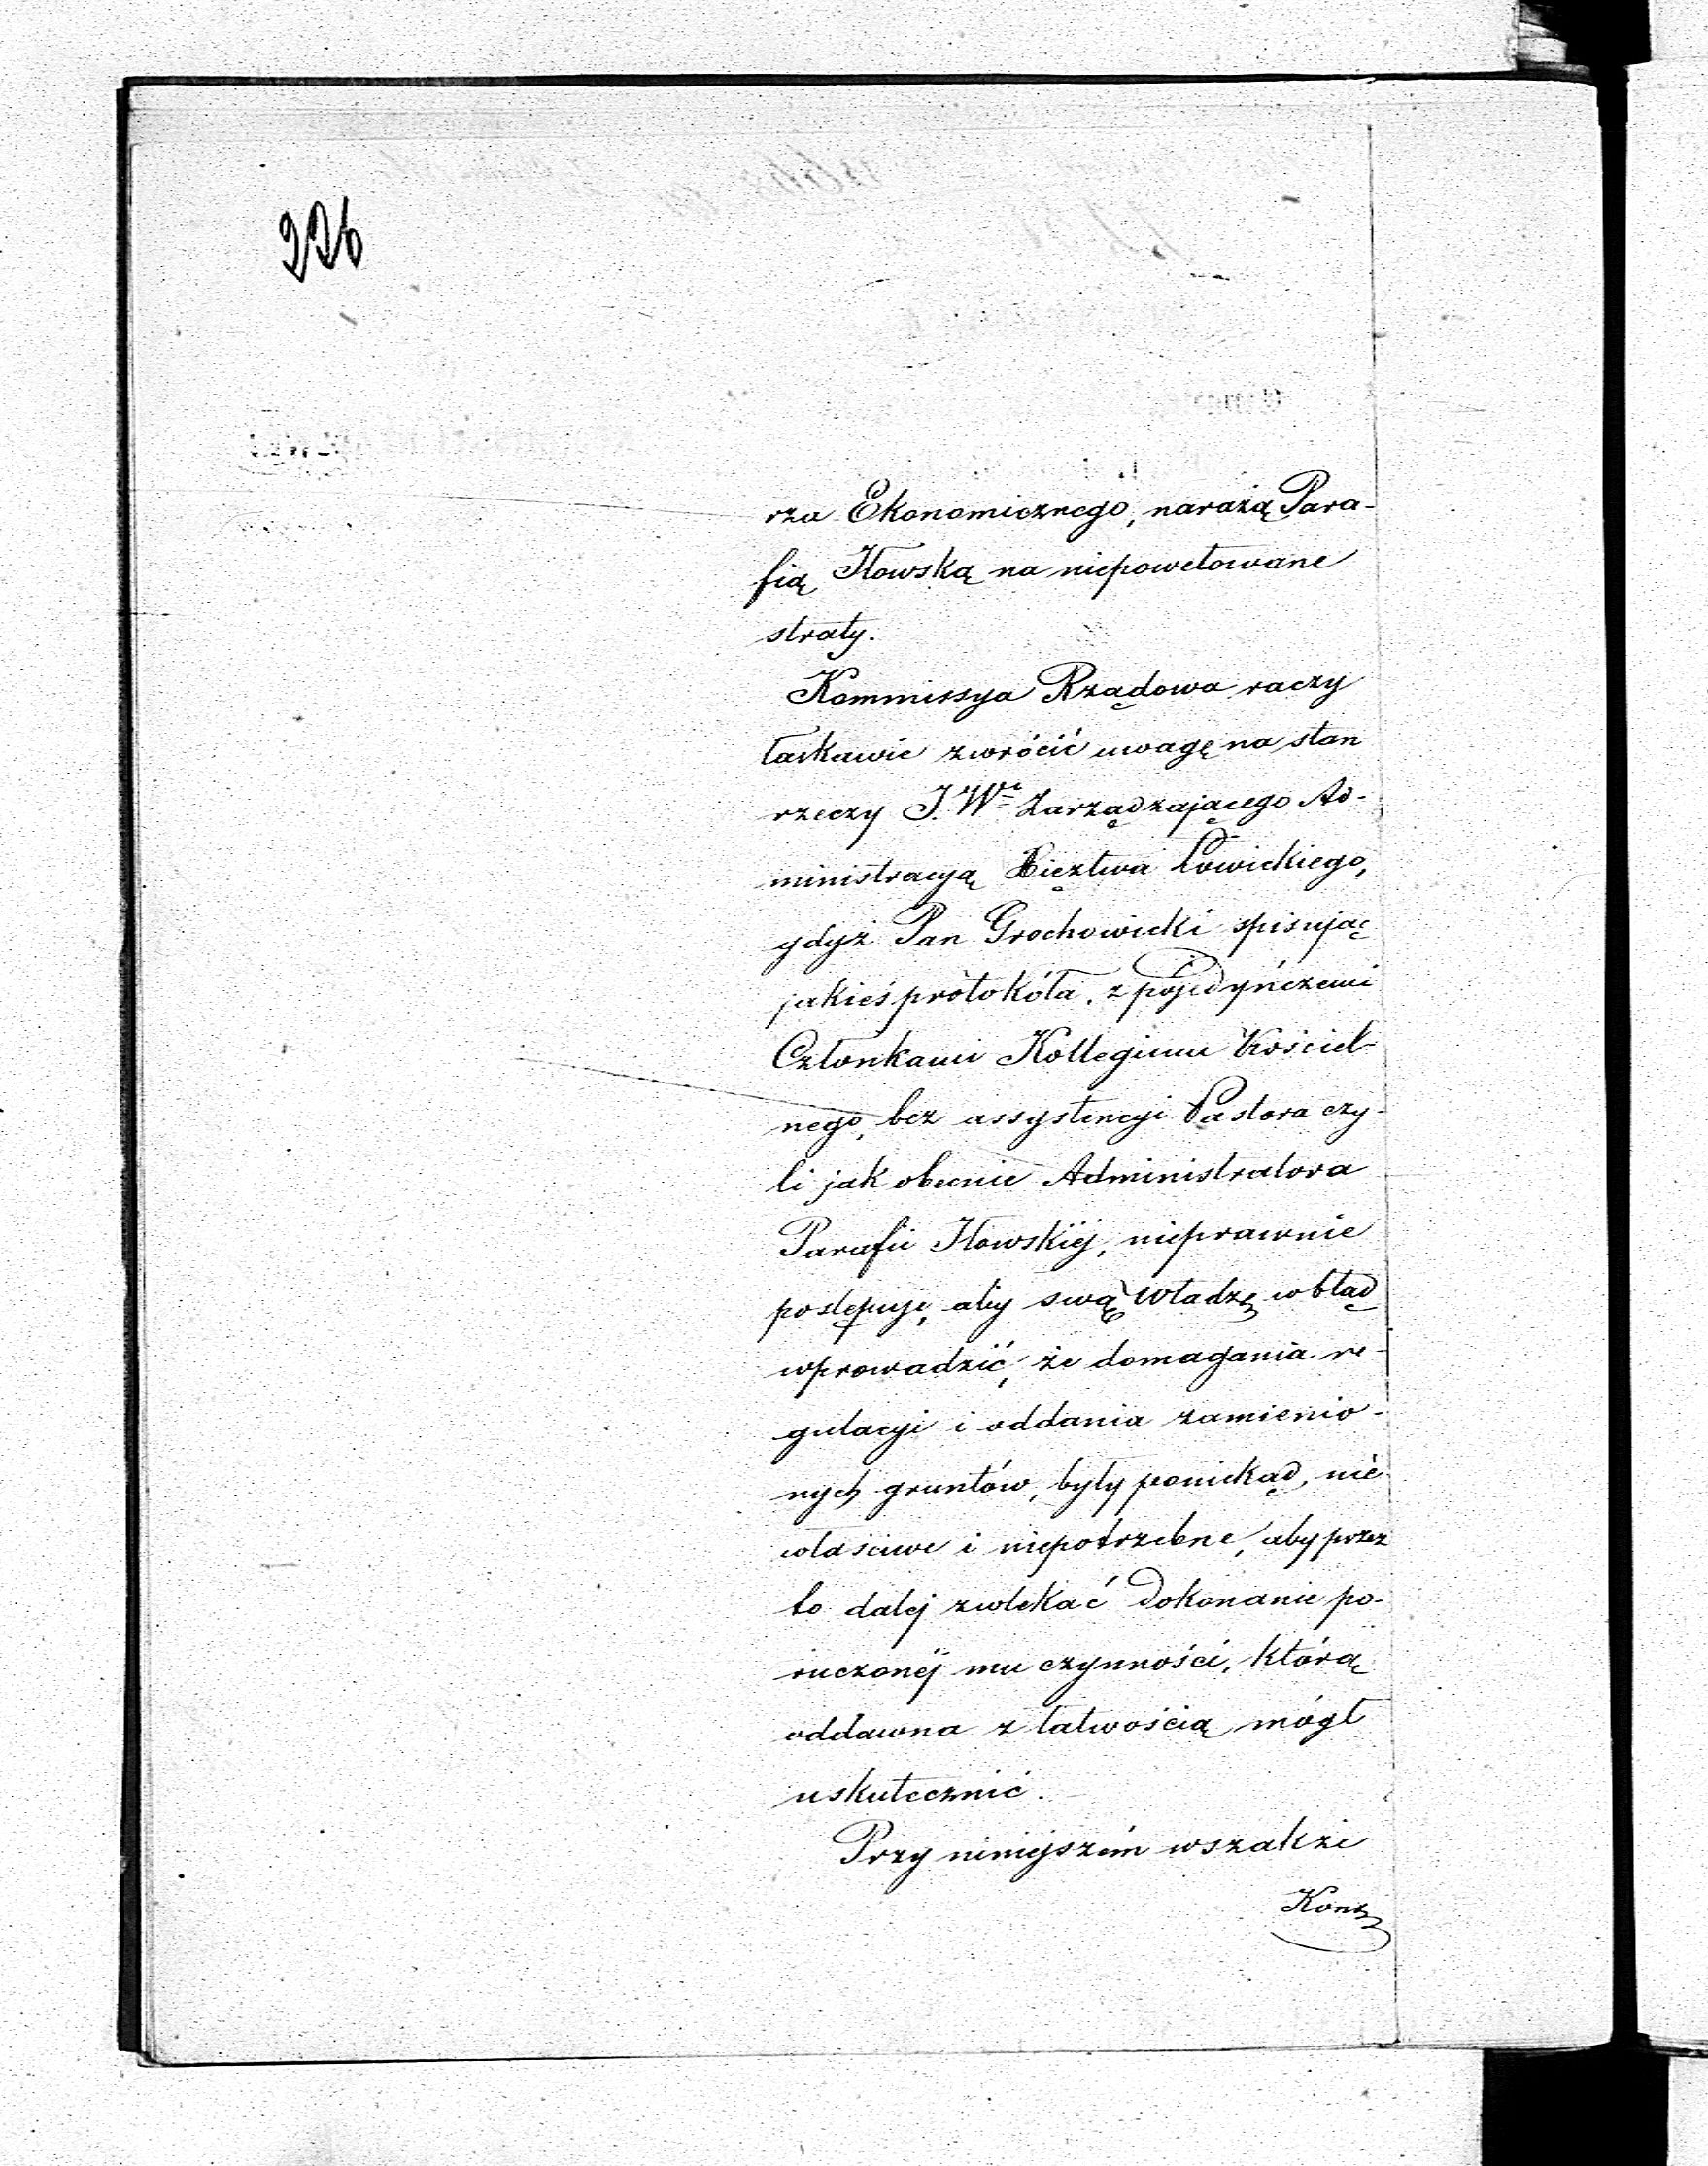 226
rza Ekonomicznego, narażą Para-
fią Iłowską na niepowetowane
straty.
Kommissya Rządowa raczy
łaskawie zwrócić uwagę na stan
rzeczy J. W<sup>e</sup> Zarządzającego Ad-
ministracyą Xięztwa Łowickiego,
gdyż Pan Grochowicki spisując
jakieś protokóła, z pojedyńczemi
Członkami Kollegium Kościel-
nego, bez assystencyi Pastora czy-
li jak obecnie Administratora
Parafii Iłowskiéj, nieprawnie
postępuje, aby swą Władzę w błąd
wprowadzić, że domagania re-
gulacyi i oddania zamienio-
nych gruntów, były poniekąd, nie
właściwe i niepotrzebne, aby przez
to daléj zwlekać dokonanie po-
ruczonéj mu czynności, którą
oddawna z łatwością mógł
uskutecznić.
Przy niniejszém wszakże